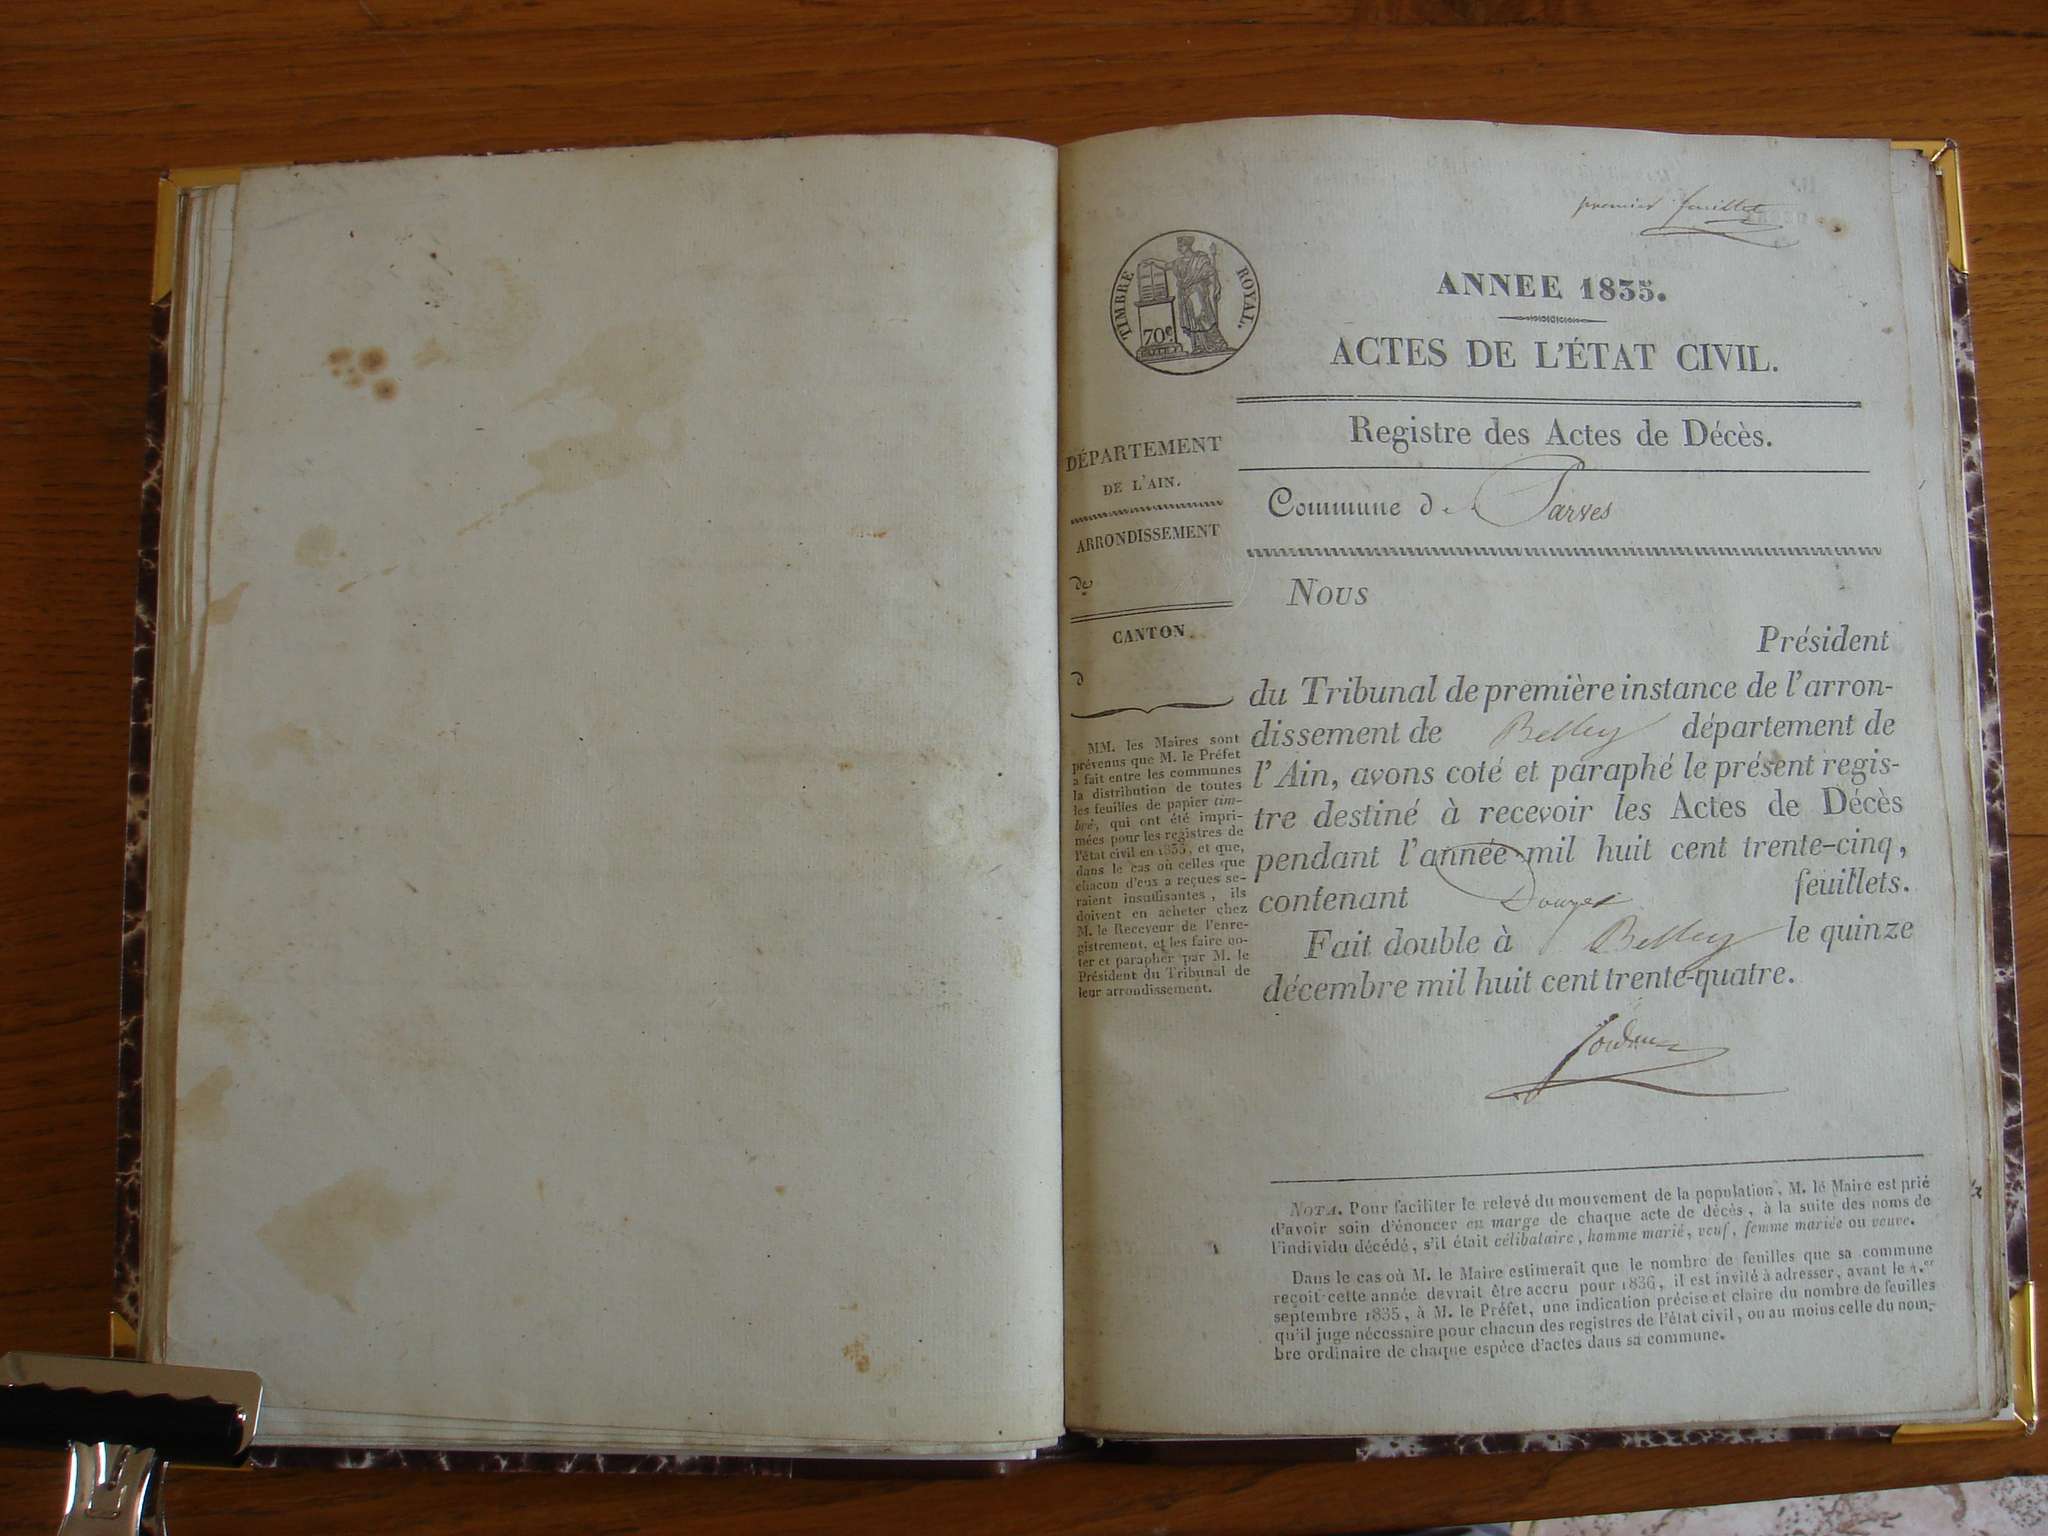 premier feuillet
TIMBRE ROYAL.
70c
ANNEE 1835.
ACTES DE L'ÉTAT CIVIL.
Registre des Actes de Décès.
Commune de Parves
DÉPARTEMENT
DE L'AIN.
ARRONDISSEMENT
de
CANTON
d
MM. les Maires sont
prévenus que M. le Préfet
a fait entre les communes
la distribution de toutes
les feuilles de papier tim-
bré, qui ont été impri-
mées pour les registres de
l'état civil en 1835, et que,
dans le cas où celles que
chacun d'eux a reçues se-
raient insuffisantes, ils
doivent en acheter chez
M. le Receveur de l'enre-
gistrement, et les faire co-
ter et parapher par M. le
Président du Tribunal de
leur arrondissement.
Nous
Président
du Tribunal de première instance de l'arron-
dissement de Belley département de
l'Ain, avons coté et paraphé le présent regis-
tre destiné à recevoir les Actes de Décès
pendant l'année mil huit cent trente-cinq,
contenant Douze feuillets.
Fait double à Belley le quinze
décembre mil huit cent trente-quatre.
NOTA. Pour faciliter le relevé du mouvement de la population, M. le Maire est prié
d'avoir soin d'énoncer en marge de chaque acte de décès, à la suite des noms de
l'individu décédé, s'il était célibataire, homme marié, veuf, femme mariée ou veuve.
Dans le cas où M. le Maire estimerait que le nombre de feuilles que sa commune
reçoit cette année devrait être accru pour 1836, il est invité à adresser, avant le 1.er
septembre 1835, à M. le Préfet, une indication précise et claire du nombre de feuilles
qu'il juge nécessaire pour chacun des registres de l'état civil, ou au moins celle du nom-
bre ordinaire de chaque espèce d'actes dans sa commune.